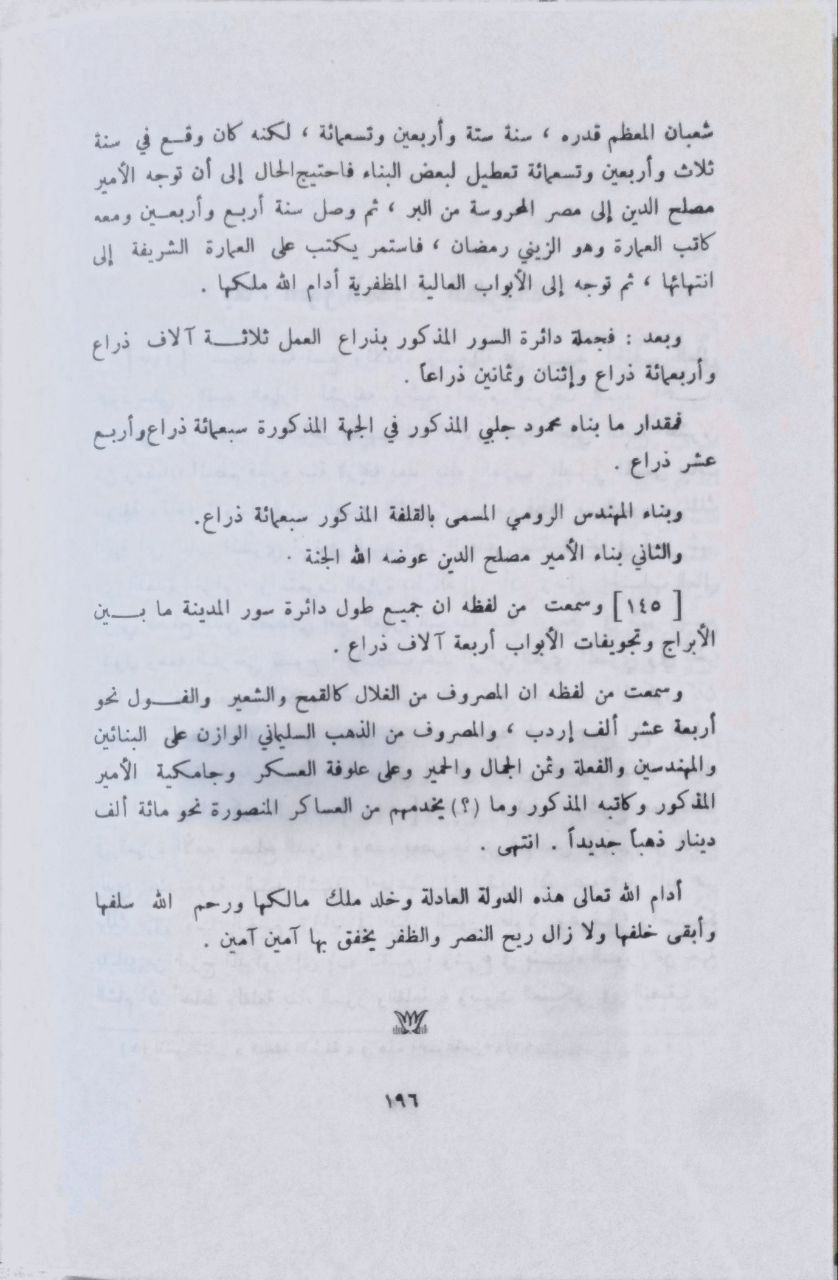 شعبان المعظم قدره ، سنة ستة وأربعين وتسعمائة ، لكنه كان وقع في سنة
ثلاث وأربعين وتسعمائة تعطيل لبعض البناء فاحتيج الحال إلى أن توجه الأمير
مصلح الدين إلى مصر المحروسة من البر ، ثم وصل سنة أربع وأربعين ومعه
كاتب العمارة وهو الزيني رمضان ، فاستمر يكتب على العمارة الشريفة إلى
انتهائها ، ثم توجه إلى الأبواب العالية المظفرية أدام الله ملكها .
وبعد : فجملة دائرة السور المذكور بذراع العمل ثلاثة آلاف ذراع
وأربعمائة ذراع وإثنان وثمانين ذراعاً .
فمقدار ما بناه محمود جلبي المذكور في الجهة المذكورة سبعمائة ذراع وأربع
عشر ذراع .
وبناء المهندس الرومي المسمى بالقلفة المذكور سبعمائة ذراع.
والثاني بناء الأمير مصلح الدين عوضه الله الجنة .
[ ١٤٥ ] وسمعت من لفظه ان جميع طول دائرة سور المدينة ما بين
الأبراج وتجويفات الأبواب أربعة آلاف ذراع .
وسمعت من لفظه ان المصروف من الغلال كالقمح والشعير والفول نحو
أربعة عشر ألف إردب ، والمصروف من الذهب السليماني الوازن على البنائين
والمهندسين والفعلة وثمن الجمال والحمير وعلى علوفة العسكر وجامكية الأمير
المذكور وكاتبه المذكور وما (؟) يخدمهم من العساكر المنصورة نحو مائة ألف
دينار ذهباً جديداً . انتهى .
أدام الله تعالى هذه الدولة العادلة وخلد ملك مالكها ورحم الله سلفها
وأبقى خلفها ولا زال ريح النصر والظفر يخفق بها آمين آمين .
١٩٦